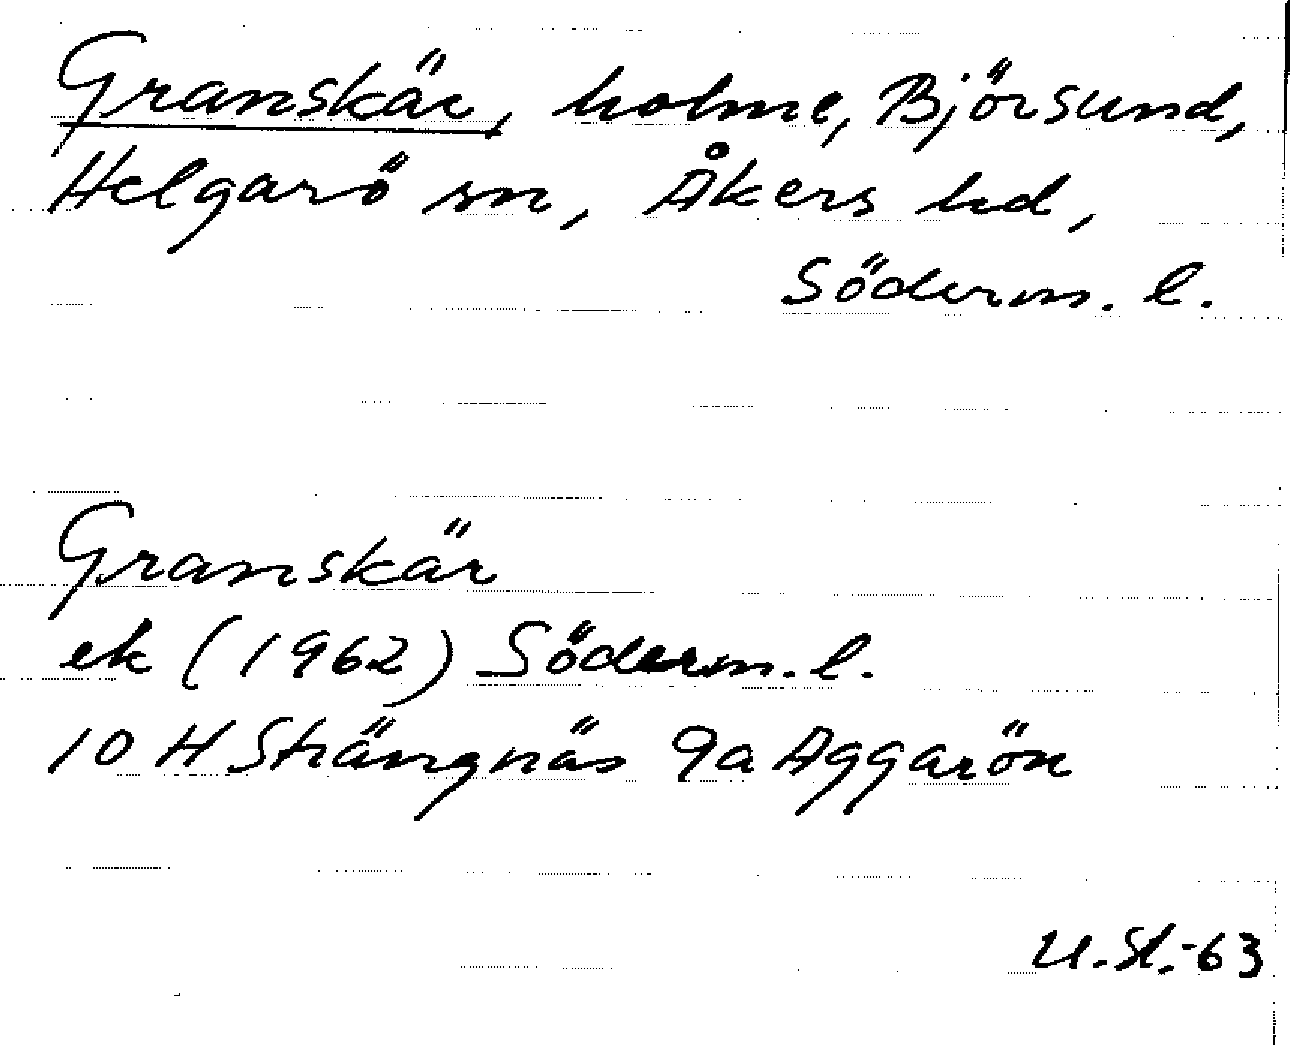 Granskär, holme, Björsund,
Helgarö sn, Åkers hd,
Söderm. l.
Granskär
ek (1962) Söderm. l.
10 H Strängnäs 9a Aggarön
U. St. -63